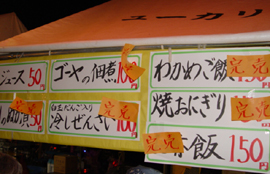 ユーカリ
ジュース 50円
ゴーヤの佃煮 100円
わかめご飯
完売
焼おにぎり
完売
白玉だんご入り
冷しぜんざい 100円
完売
飯 150円
完売